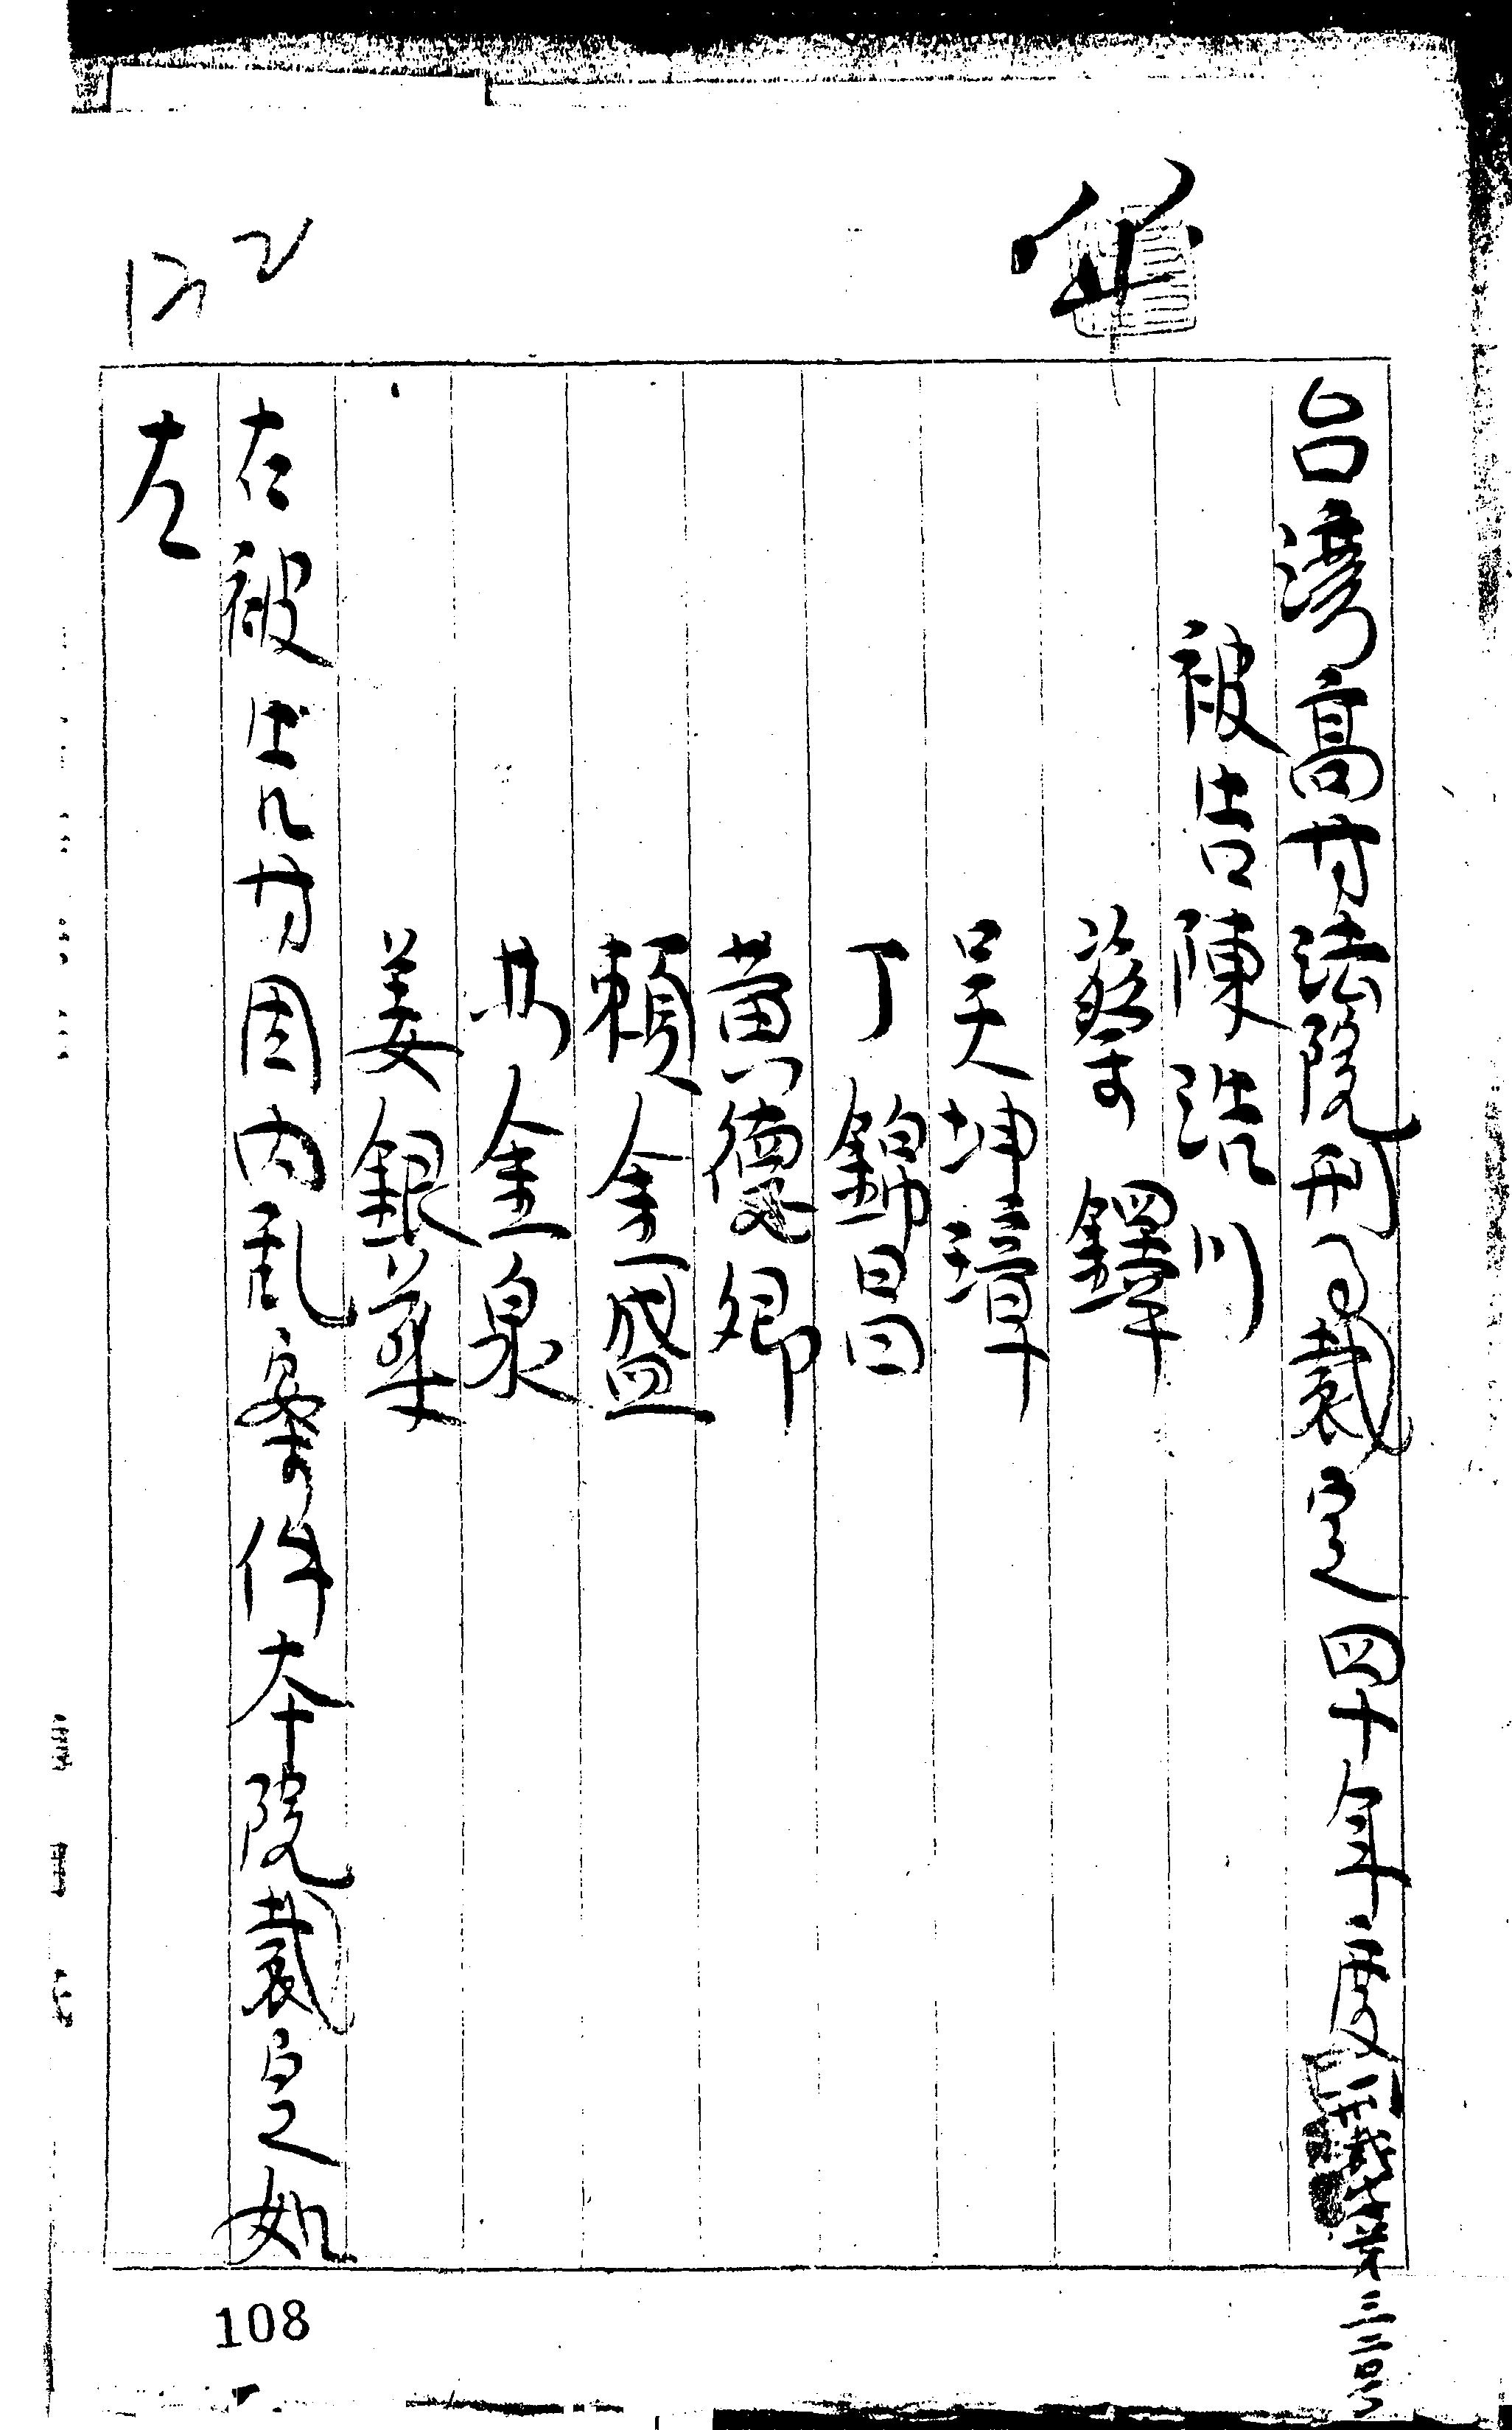 台湾高等法院刑事裁定四十年度議字第三二号
被告陳浩川
蔡鐸
吴坤璋
丁錦昌
黄德卿
賴金盛
林金泉
姜銀菜
右被告等因内乱案件本院裁定如
左
108